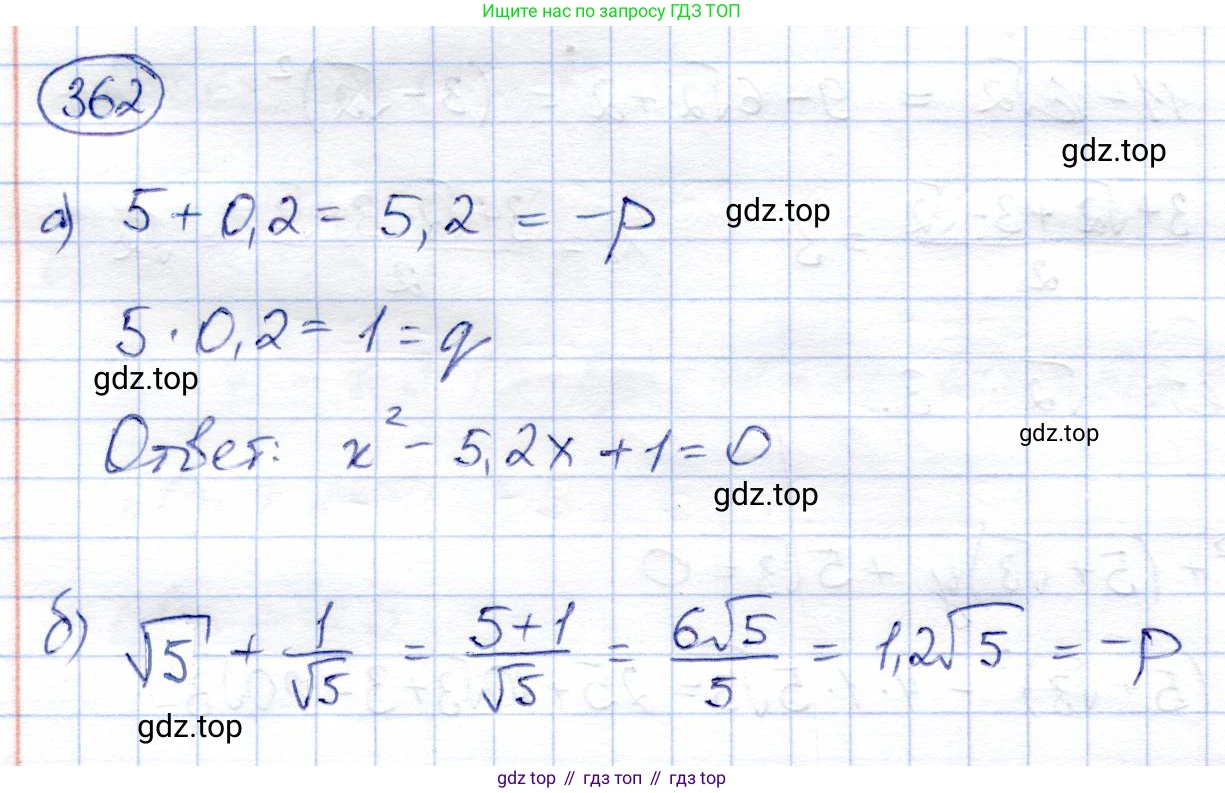 Ищите нас по запросу ГДЗ ТОП
362
gdz.top
а) 5 + 0,2 = 5,2 = -p
gdz.top
5 · 0,2 = 1 = q
gdz.top
Ответ: x² - 5,2x + 1 = 0
gdz.top
gdz.top
б) √5 + 1/√5 = (5+1)/√5 = 6√5/5 = 1,2√5 = -p
gdz.top
gdz top // гдз топ // гдз top